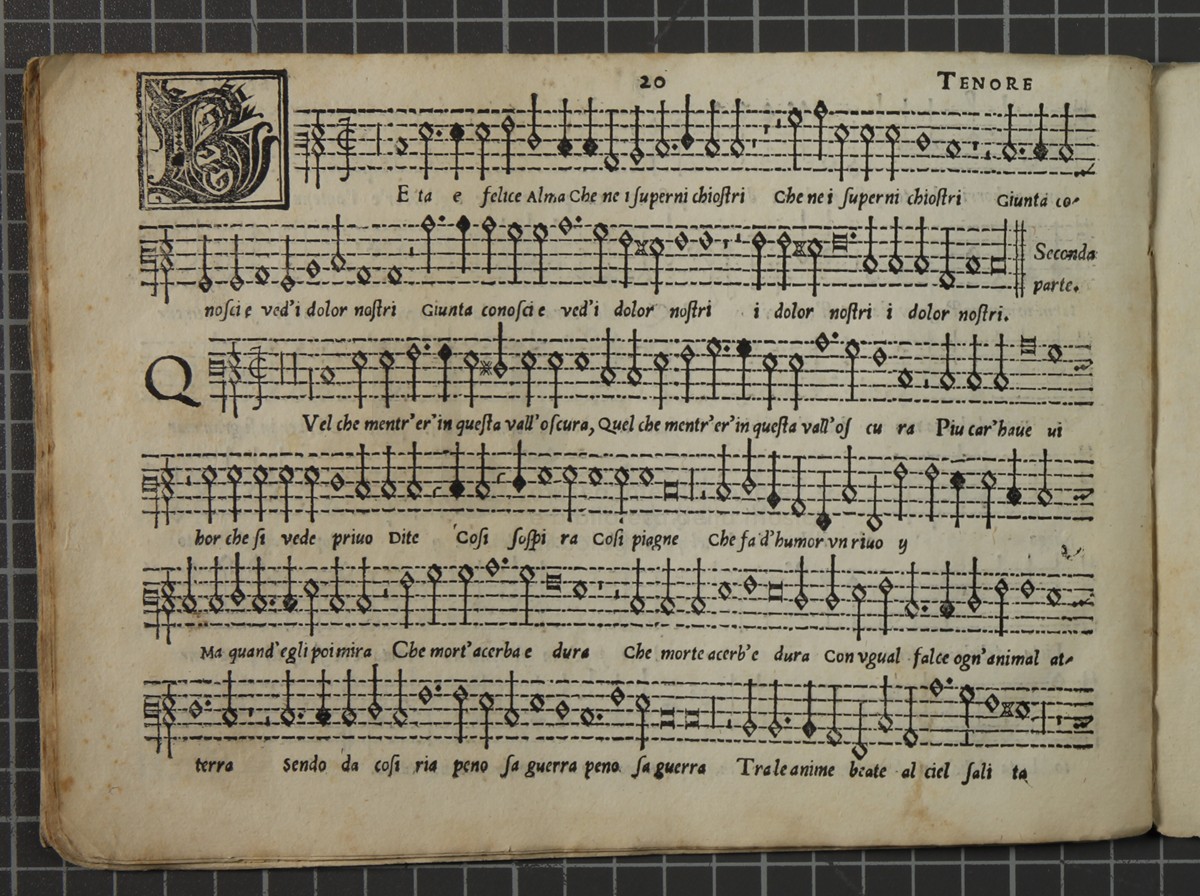 20 TENORE
B E ta e felice Alma Che ne i ſuperni chioſtri Che ne i ſuperni chioſtri Giunta co-
noſci e ved'i dolor noſtri Giunta conoſci e ved'i dolor noſtri i dolor noſtri i dolor noſtri. Seconda parte.
Q Vel che mentr'er'in queſta vall'oſcura, Quel che mentr'er'in queſta vall'oſ cu ra Piu car'haue ui
hor che ſi vede priuo Dite Coſi ſoſpi ra Coſi piagne Che fa d'humor vn riuo y
Ma quand'egli poi mira Che mort'acerba e dura Che morte acerb'e dura Con vgual falce ogn'animal at-
terra Sendo da coſi ria peno ſa guerra peno ſa guerra Tra le anime beate al ciel ſali ta